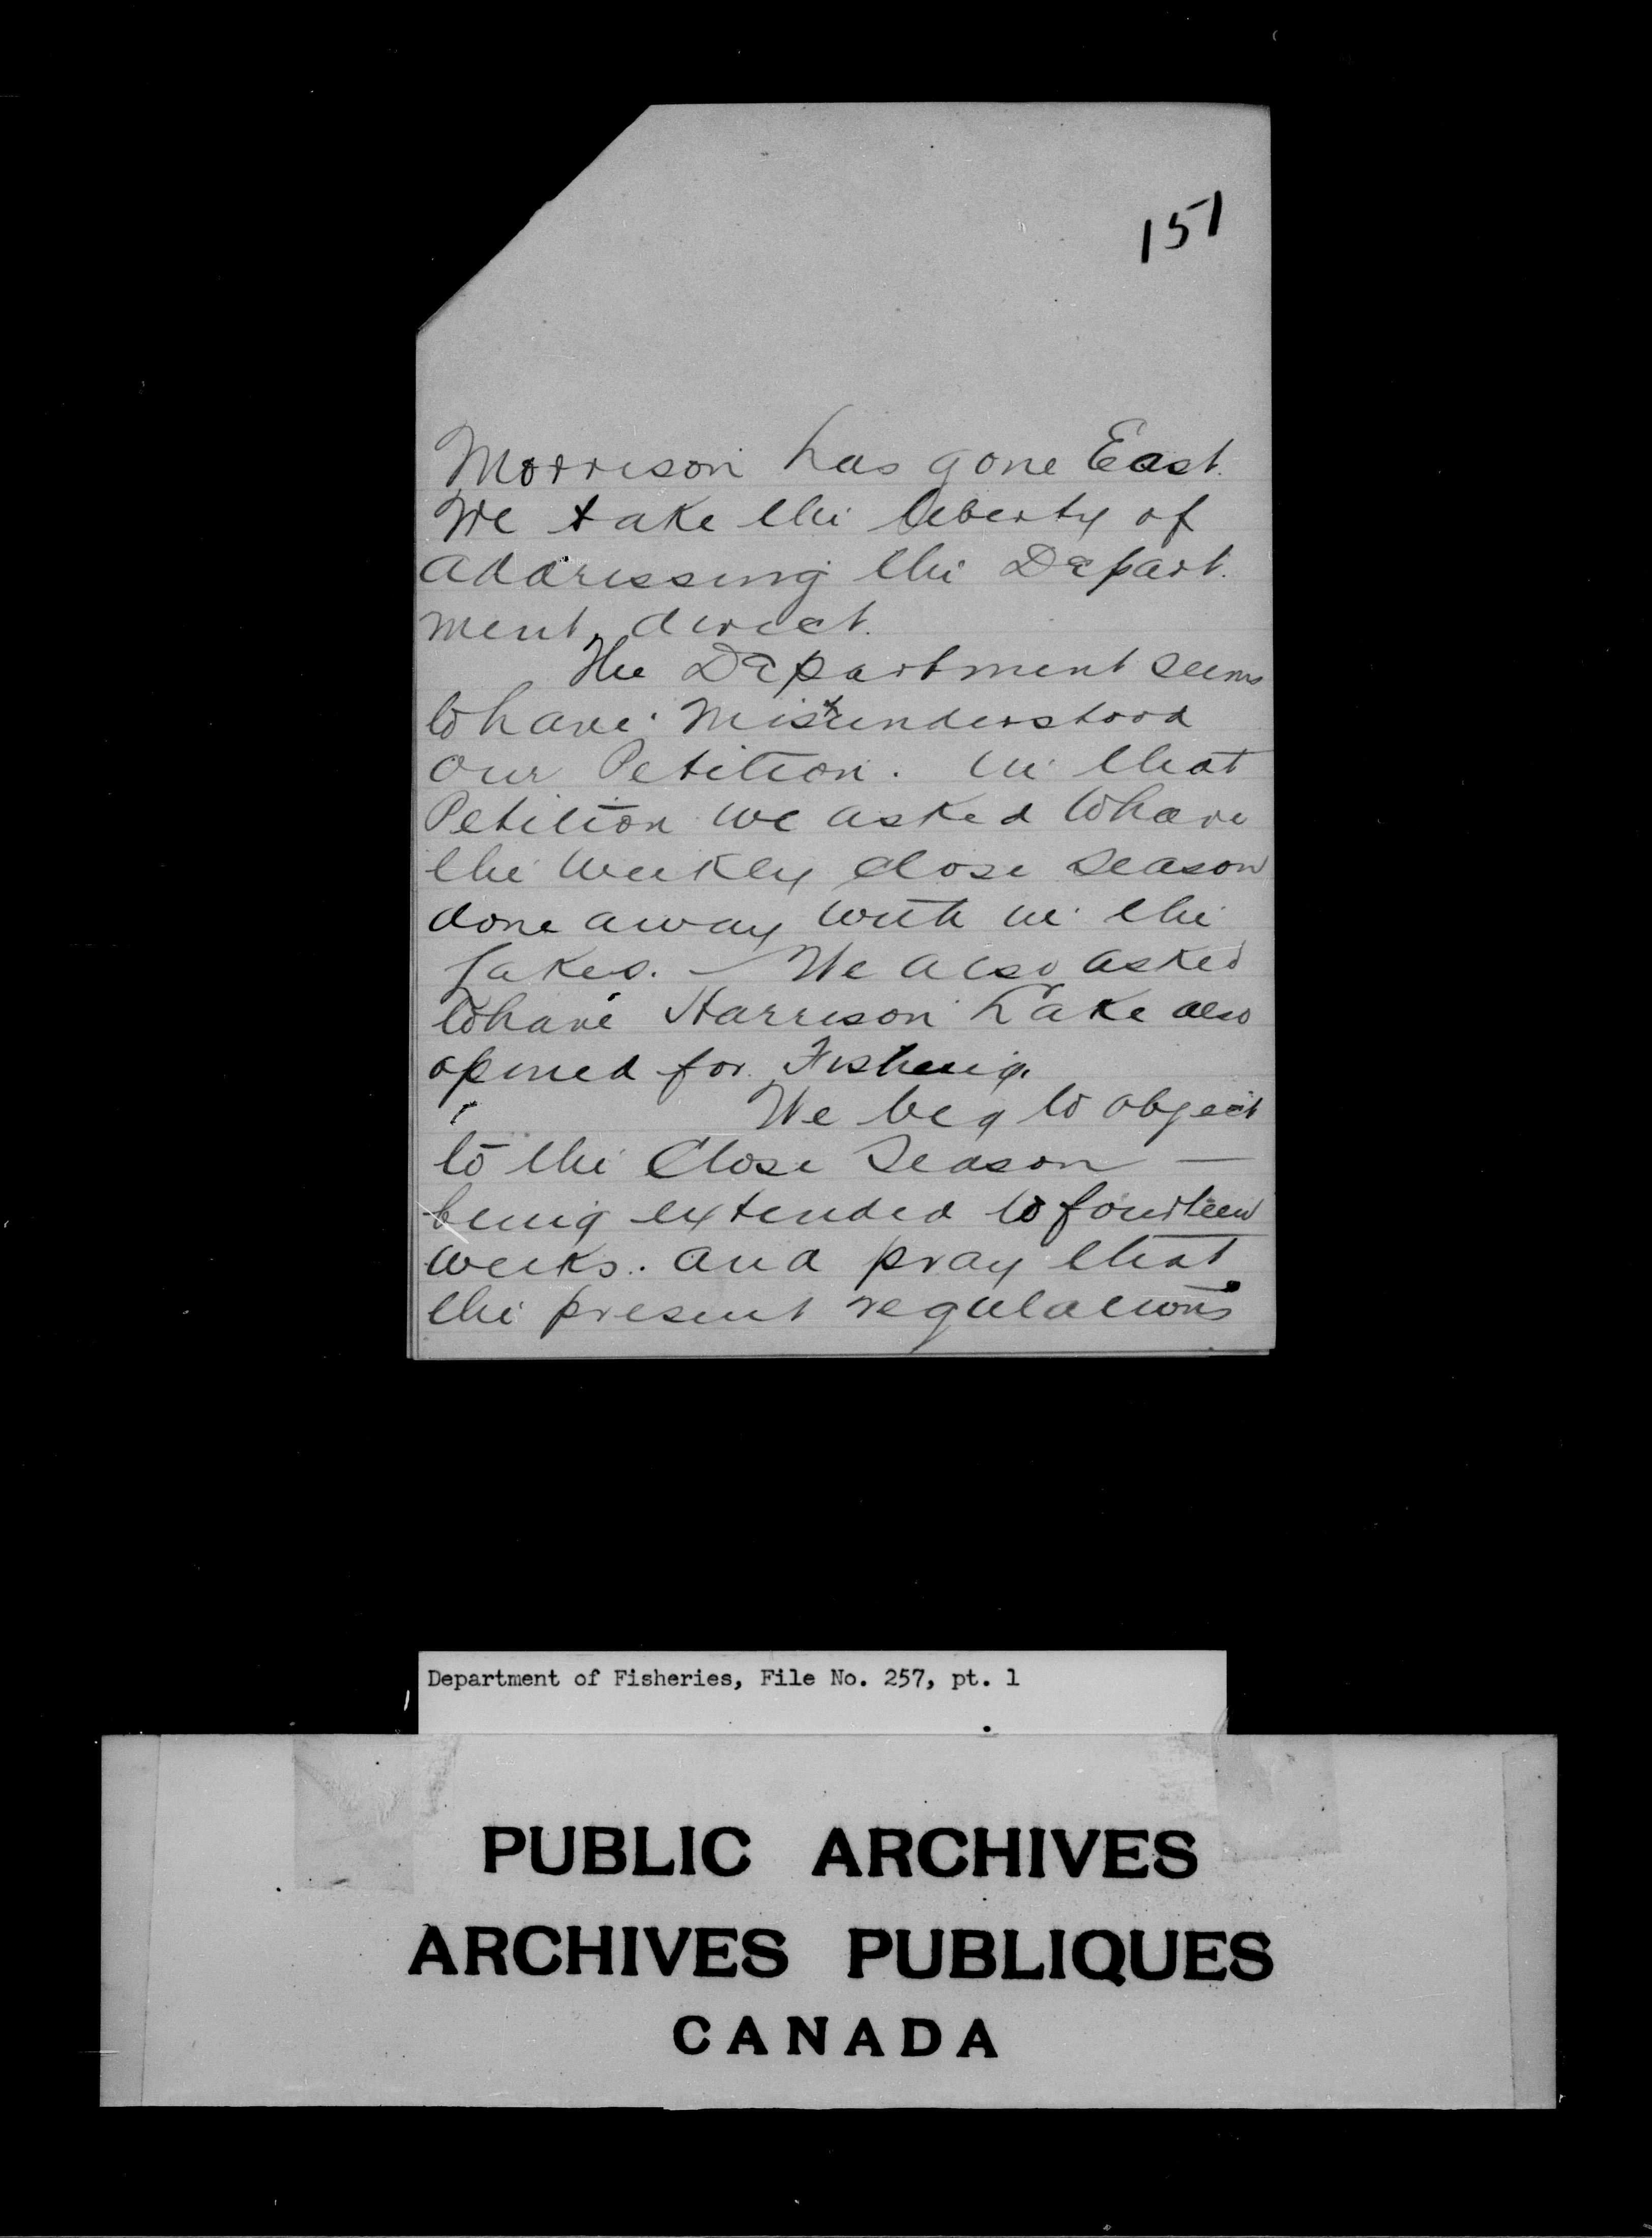 151
Morrison has gone East.
We take the liberty of
addressing the Depart.
ment, direct.
The Department seems
to have misunderstood
our Petition. in that
Petition we asked to have
the weekly close season
done away with in the
Lakes. - We also asked
to have Harrison Lake also
opened for Fishing.
We beg to object
to the Close Season —
being extended to fourteen
weeks. and pray that
the present regulations
Department of Fisheries, File No. 257, pt. 1
PUBLIC ARCHIVES
ARCHIVES PUBLIQUES
CANADA